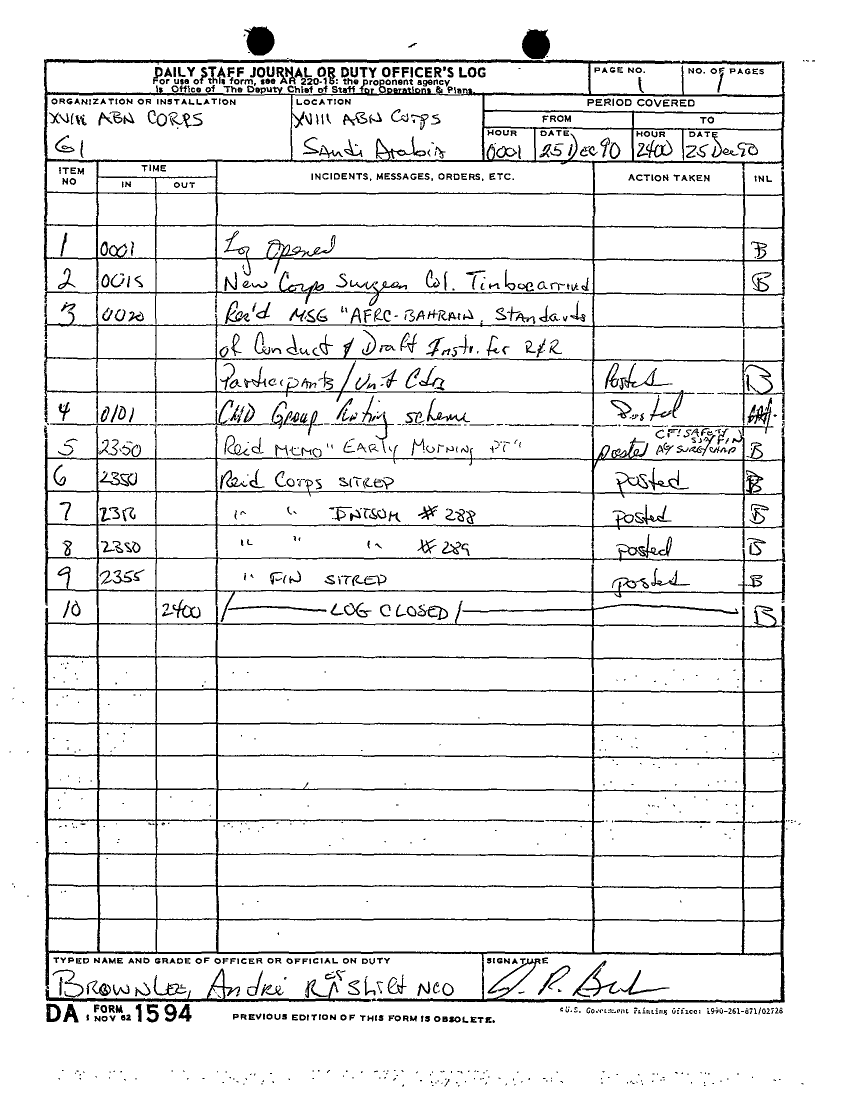 DAILY STAFF JOURNAL OR DUTY OFFICER'S LOG
For use of this form, see AR 220-15; the proponent agency
is Office of The Deputy Chief of Staff for Operations & Plans.
PAGE NO.
1
NO. OF PAGES
1
ORGANIZATION OR INSTALLATION
XVIII ABN CORPS
G1
LOCATION
XVIII ABN Corps
Saudi Arabia
PERIOD COVERED
FROM
TO
HOUR
0001
DATE
25 Dec 90
HOUR
2400
DATE
25 Dec 90
ITEM NO
TIME
IN
OUT
INCIDENTS, MESSAGES, ORDERS, ETC.
ACTION TAKEN
INL
1 0001 Log Opened B
2 0015 New Corps Surgeon Col. Timboe arrived B
3 0020 Rec'd MSG "AFRC-BAHRAIN, Standards
of Conduct & Draft Instr. for R&R
Participants/Unit Cdrs Posted B
4 0101 CMD Group Posted
5 2350 Rec'd MEMO "EARLY MORNING PT" posted B
6 2350 Rec'd Corps SITREP posted B
7 " " INTSUM # 288 posted B
8 2350 " " " # 289 posted B
9 2355 " FIN SITREP posted B
10 2400 /LOG CLOSED/ B
TYPED NAME AND GRADE OF OFFICER OR OFFICIAL ON DUTY
BROWNLEE, André Shift NCO
SIGNATURE
DA FORM 1 NOV 62 1594
PREVIOUS EDITION OF THIS FORM IS OBSOLETE.
*U.S. Government Printing Office: 1990-261-871/02728